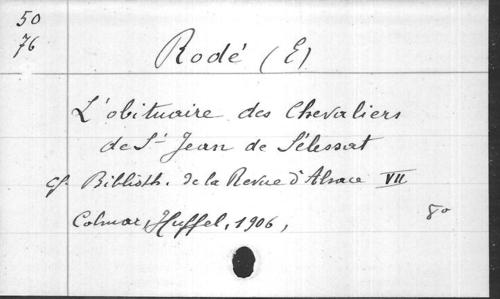 50
76
Rodé (E)
L'obituaire des Chevaliers
de St Jean de Sélessat
cf. Biblioth. de la Revue d'Alsace VII
Colmar, Huffel, 1906, 8o